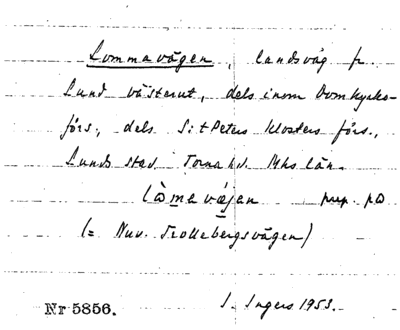 Lommavägen, landsväg fr.
Lund västerut, dels inom Domkyrko-
förs., dels S:t Peters Klosters förs.,
Lunds stad Torna hd. Mhs län.
låmavæjen prep. på
(= Nuv. Trollebergsvägen)
Nr 5856. I. Ingers 1953.